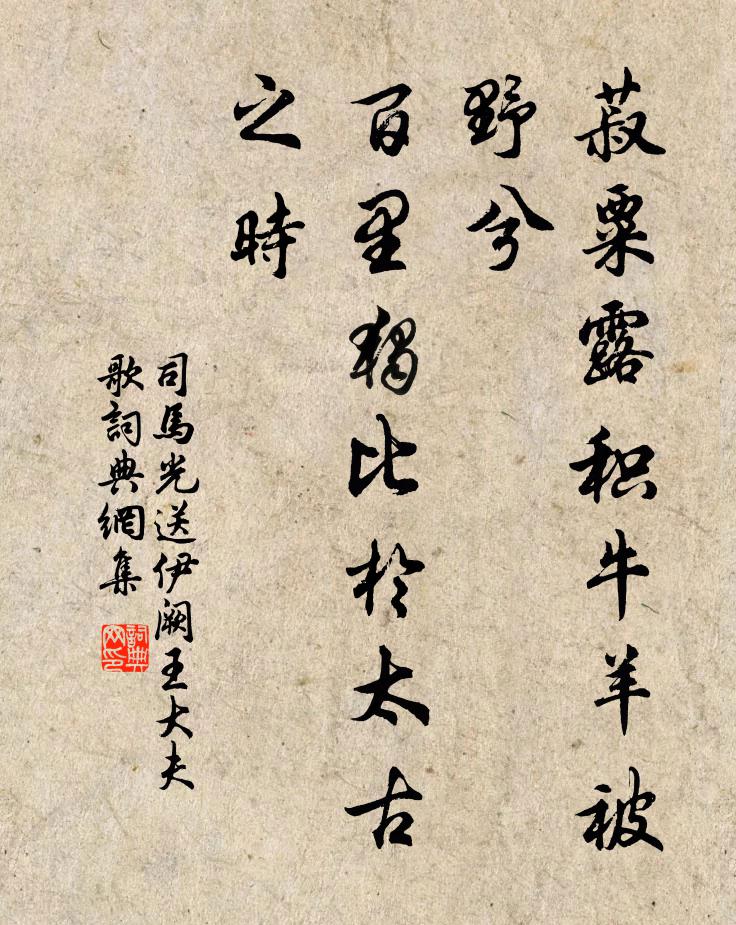 菽粟露积牛羊被
野兮
百里独比於太古
之時
司馬光送伊阙王大夫
歌詞典網集
詞典
网印